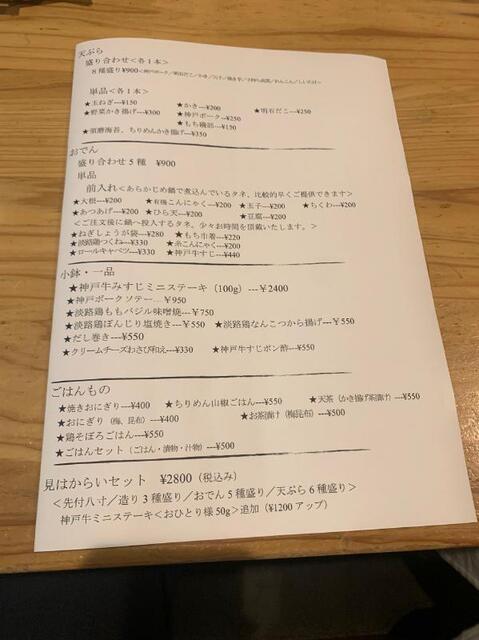 天ぷら
盛り合わせ<各１本>
８種盛り¥900
単品<各１本>
★玉ねぎ---¥150 ★かき---¥200 ★明石だこ---¥250
★野菜かき揚げ---¥300 ★神戸ポーク---¥250
★もち磯部---¥150
★須磨海苔、ちりめんかき揚げ---¥350
おでん
盛り合わせ５種 ¥900
単品
前入れ<あらかじめ鍋で煮込んでいるタネ、比較的早くご提供できます>
★大根---¥200 ★有機こんにゃく---¥200 ★玉子---¥200 ★ちくわ---¥200
★あつあげ---¥200 ★ひら天---¥200 ★豆腐---¥200
<ご注文後に鍋へ投入するタネ、少々お時間を頂戴いたします。>
★ねぎしょうが袋---¥280 ★もち巾着---¥220
★淡路鶏つくね---¥330 ★糸こんにゃく---¥200
★ロールキャベツ---¥330 ★神戸牛すじ---¥440
小鉢・一品
★神戸牛みすじミニステーキ（100g）---￥2400
★神戸ポークソテー---￥950
★淡路鶏ももバジル味噌焼---￥750
★淡路鶏ぼんじり塩焼き---￥550 ★淡路鶏なんこつから揚げ---￥550
★だし巻き---￥550
★クリームチーズわさび和え---¥330 ★神戸牛すじポン酢---¥550
ごはんもの
★焼きおにぎり---¥400 ★ちりめん山椒ごはん---¥550 ★天茶（かき揚げ茶漬け）---¥550
★おにぎり（梅、昆布）---¥400 ★お茶漬け（梅昆布）---¥500
★鶏そぼろごはん---¥550
★ごはんセット（ごはん・漬物・汁物）---¥500
見はからいセット ¥2800（税込み）
<先付八寸／造り３種盛り／おでん５種盛り／天ぷら６種盛り>
神戸牛ミニステーキ<おひとり様50g>追加（¥1200アップ）